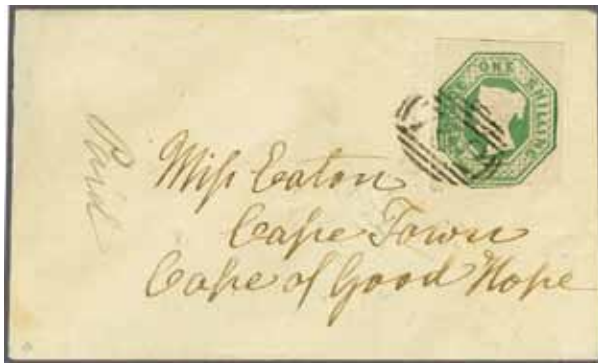 ONE SHILLING
POSTAGE
Paid
Miſs Eaton
Cape Town
Cape of Good Hope